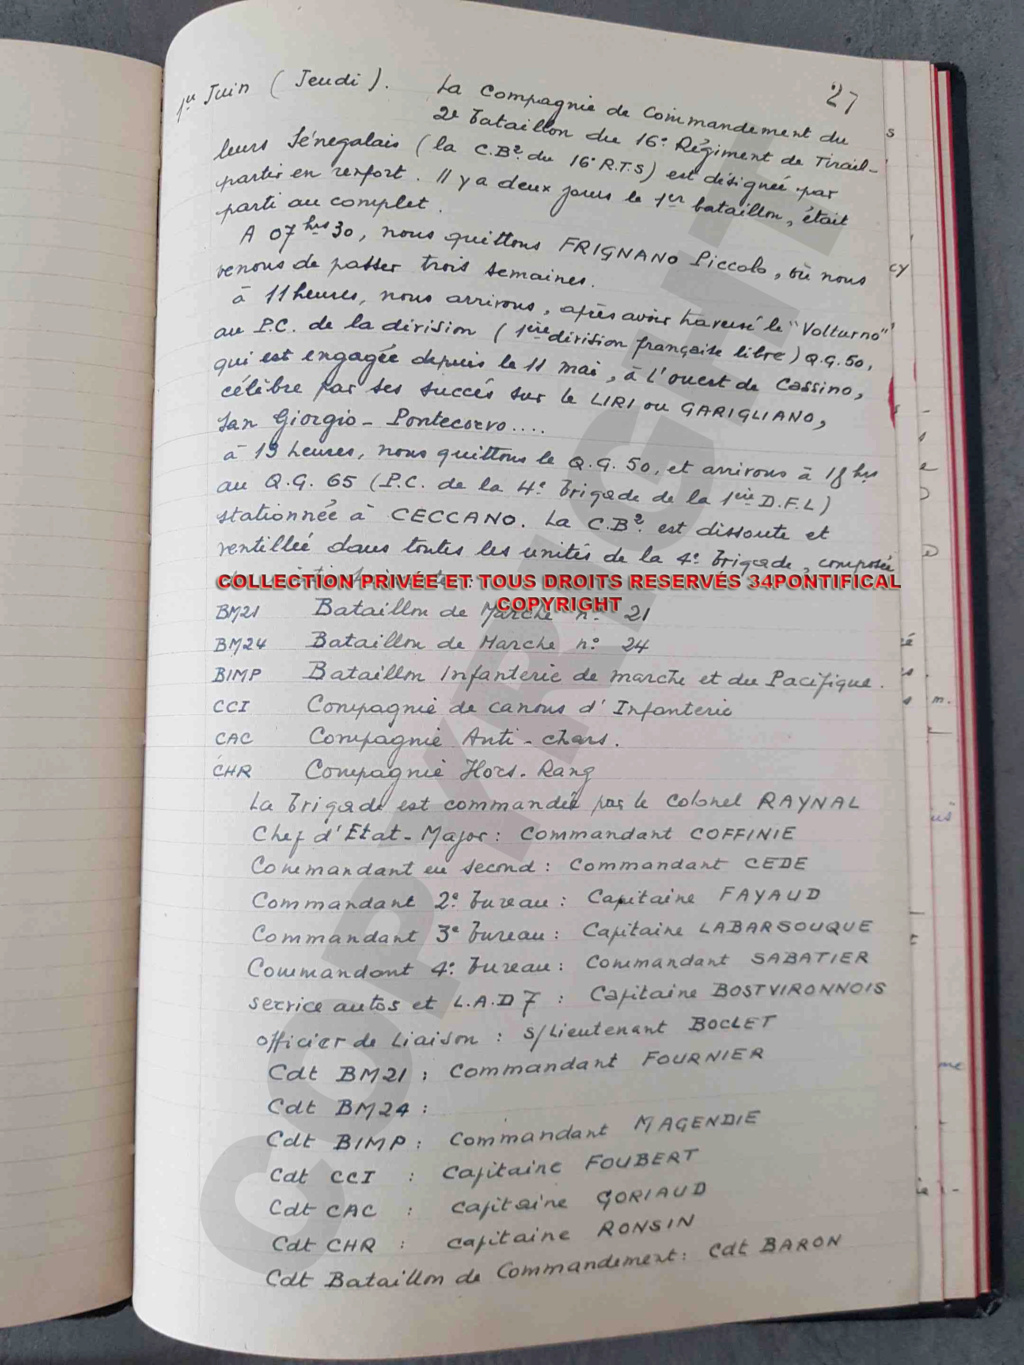 27
1er Juin (Jeudi). La Compagnie de Commandement du
2e bataillon du 16e Régiment de Tirail-
leurs Sénegalais (la C.B2. du 16e R.T.S) est désignée par
partir en renfort. Il y a deux jours le 1er bataillon, était
parti au complet.
A 07 hrs 30, nous quittons FRIGNANO Piccolo, où nous
venons de passer trois semaines.
à 11 heures, nous arrivons, après avoir traversé le "Volturno"
au P.C. de la division (1ère division française libre) Q.G. 50,
qui est engagée depuis le 11 mai, à l'ouest de Cassino,
célèbre par ses succés sur le LIRI ou GARIGLIANO,
San Giorgio - Pontecorvo....
à 13 heures, nous quittons le Q.G. 50, et arrivons à 18 hrs
au Q.G. 65 (P.C. de la 4e brigade de la 1ère D.F.L)
stationnée à CECCANO. La C.B2. est dissoute et
ventillée dans toutes les unités de la 4e brigade, composée
COLLECTION PRIVÉE ET TOUS DROITS RESERVÉS 34PONTIFICAL
COPYRIGHT
BM21 Bataillon de Marche n° 21
BM24 Bataillon de Marche n° 24
BIMP Bataillon Infanterie de marche et du Pacifique.
CCI Compagnie de canons d'Infanterie
CAC Compagnie Anti-chars.
CHR Compagnie Hors-Rang
La brigade est commandée par le Colonel RAYNAL
Chef d'État-Major : Commandant COFFINIE
Commandant en second : Commandant CEDE
Commandant 2e bureau : Capitaine FAYAUD
Commandant 3e bureau : Capitaine LABARSOUQUE
Commandant 4e bureau : Commandant SABATIER
service autos et L.A.D 7 : Capitaine BOSTVIRONNOIS
officier de Liaison : s/Lieutenant BOCLET
Cdt BM21 : Commandant FOURNIER
Cdt BM24 :
Cdt BIMP : Commandant MAGENDIE
Cdt CCI : Capitaine FOUBERT
Cdt CAC : Capitaine GORIAUD
Cdt CHR : Capitaine RONSIN
Cdt Bataillon de Commandement : Cdt BARON
COPYRIGHT